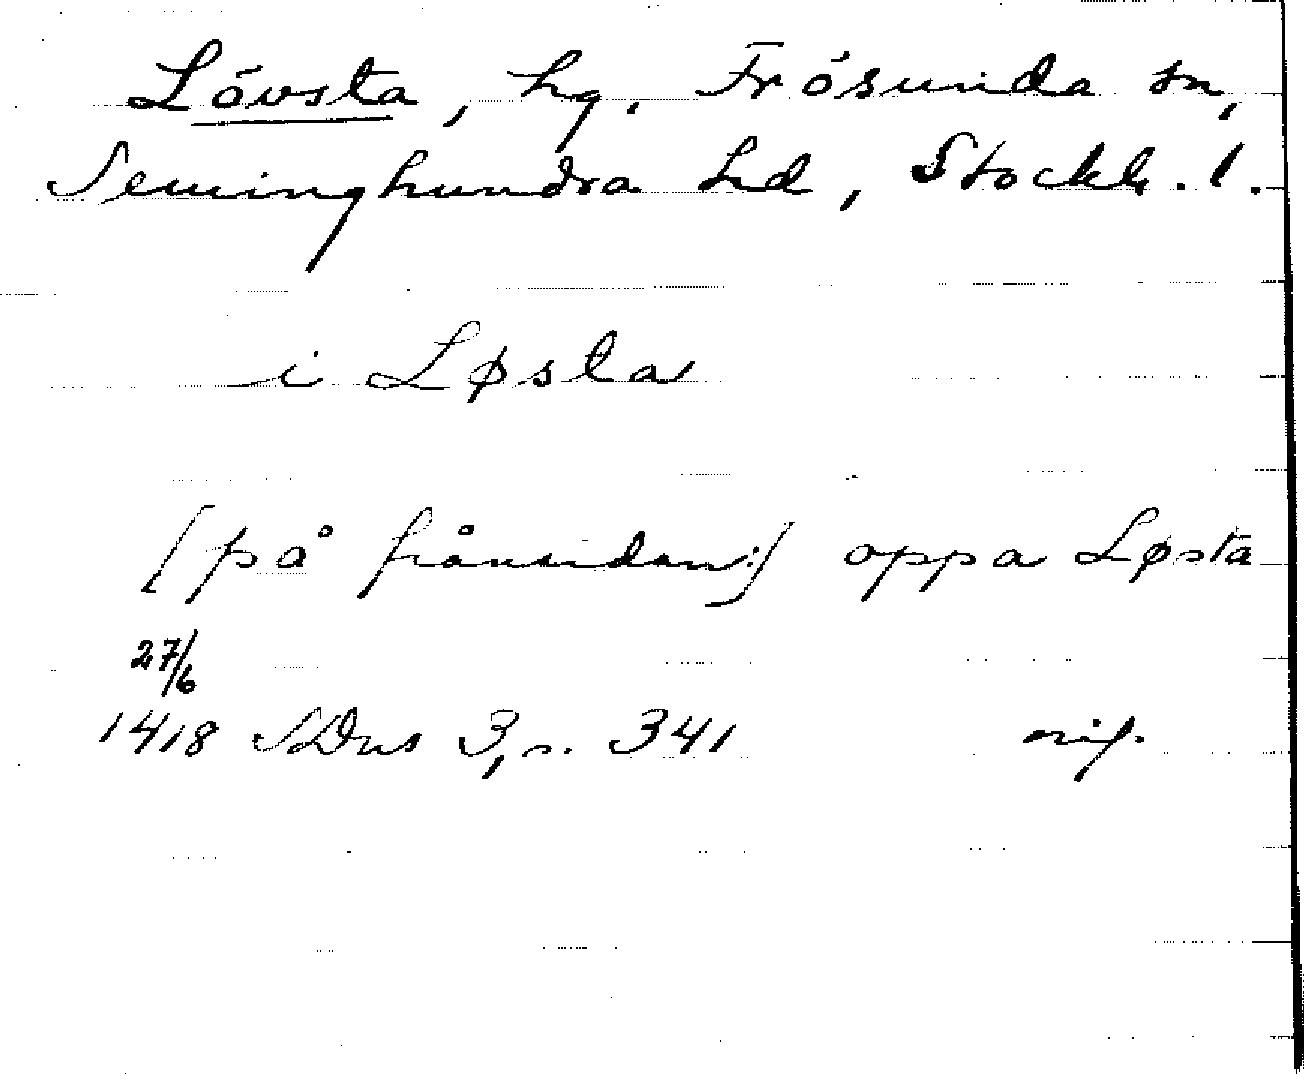 Lövsta, hg. Frösunda sn,
Seminghundra hd, Stockh. l.
i Løsta
[på frånsidan:] oppa Løsta
27/6
1418 SDns 3, s. 341 orig.